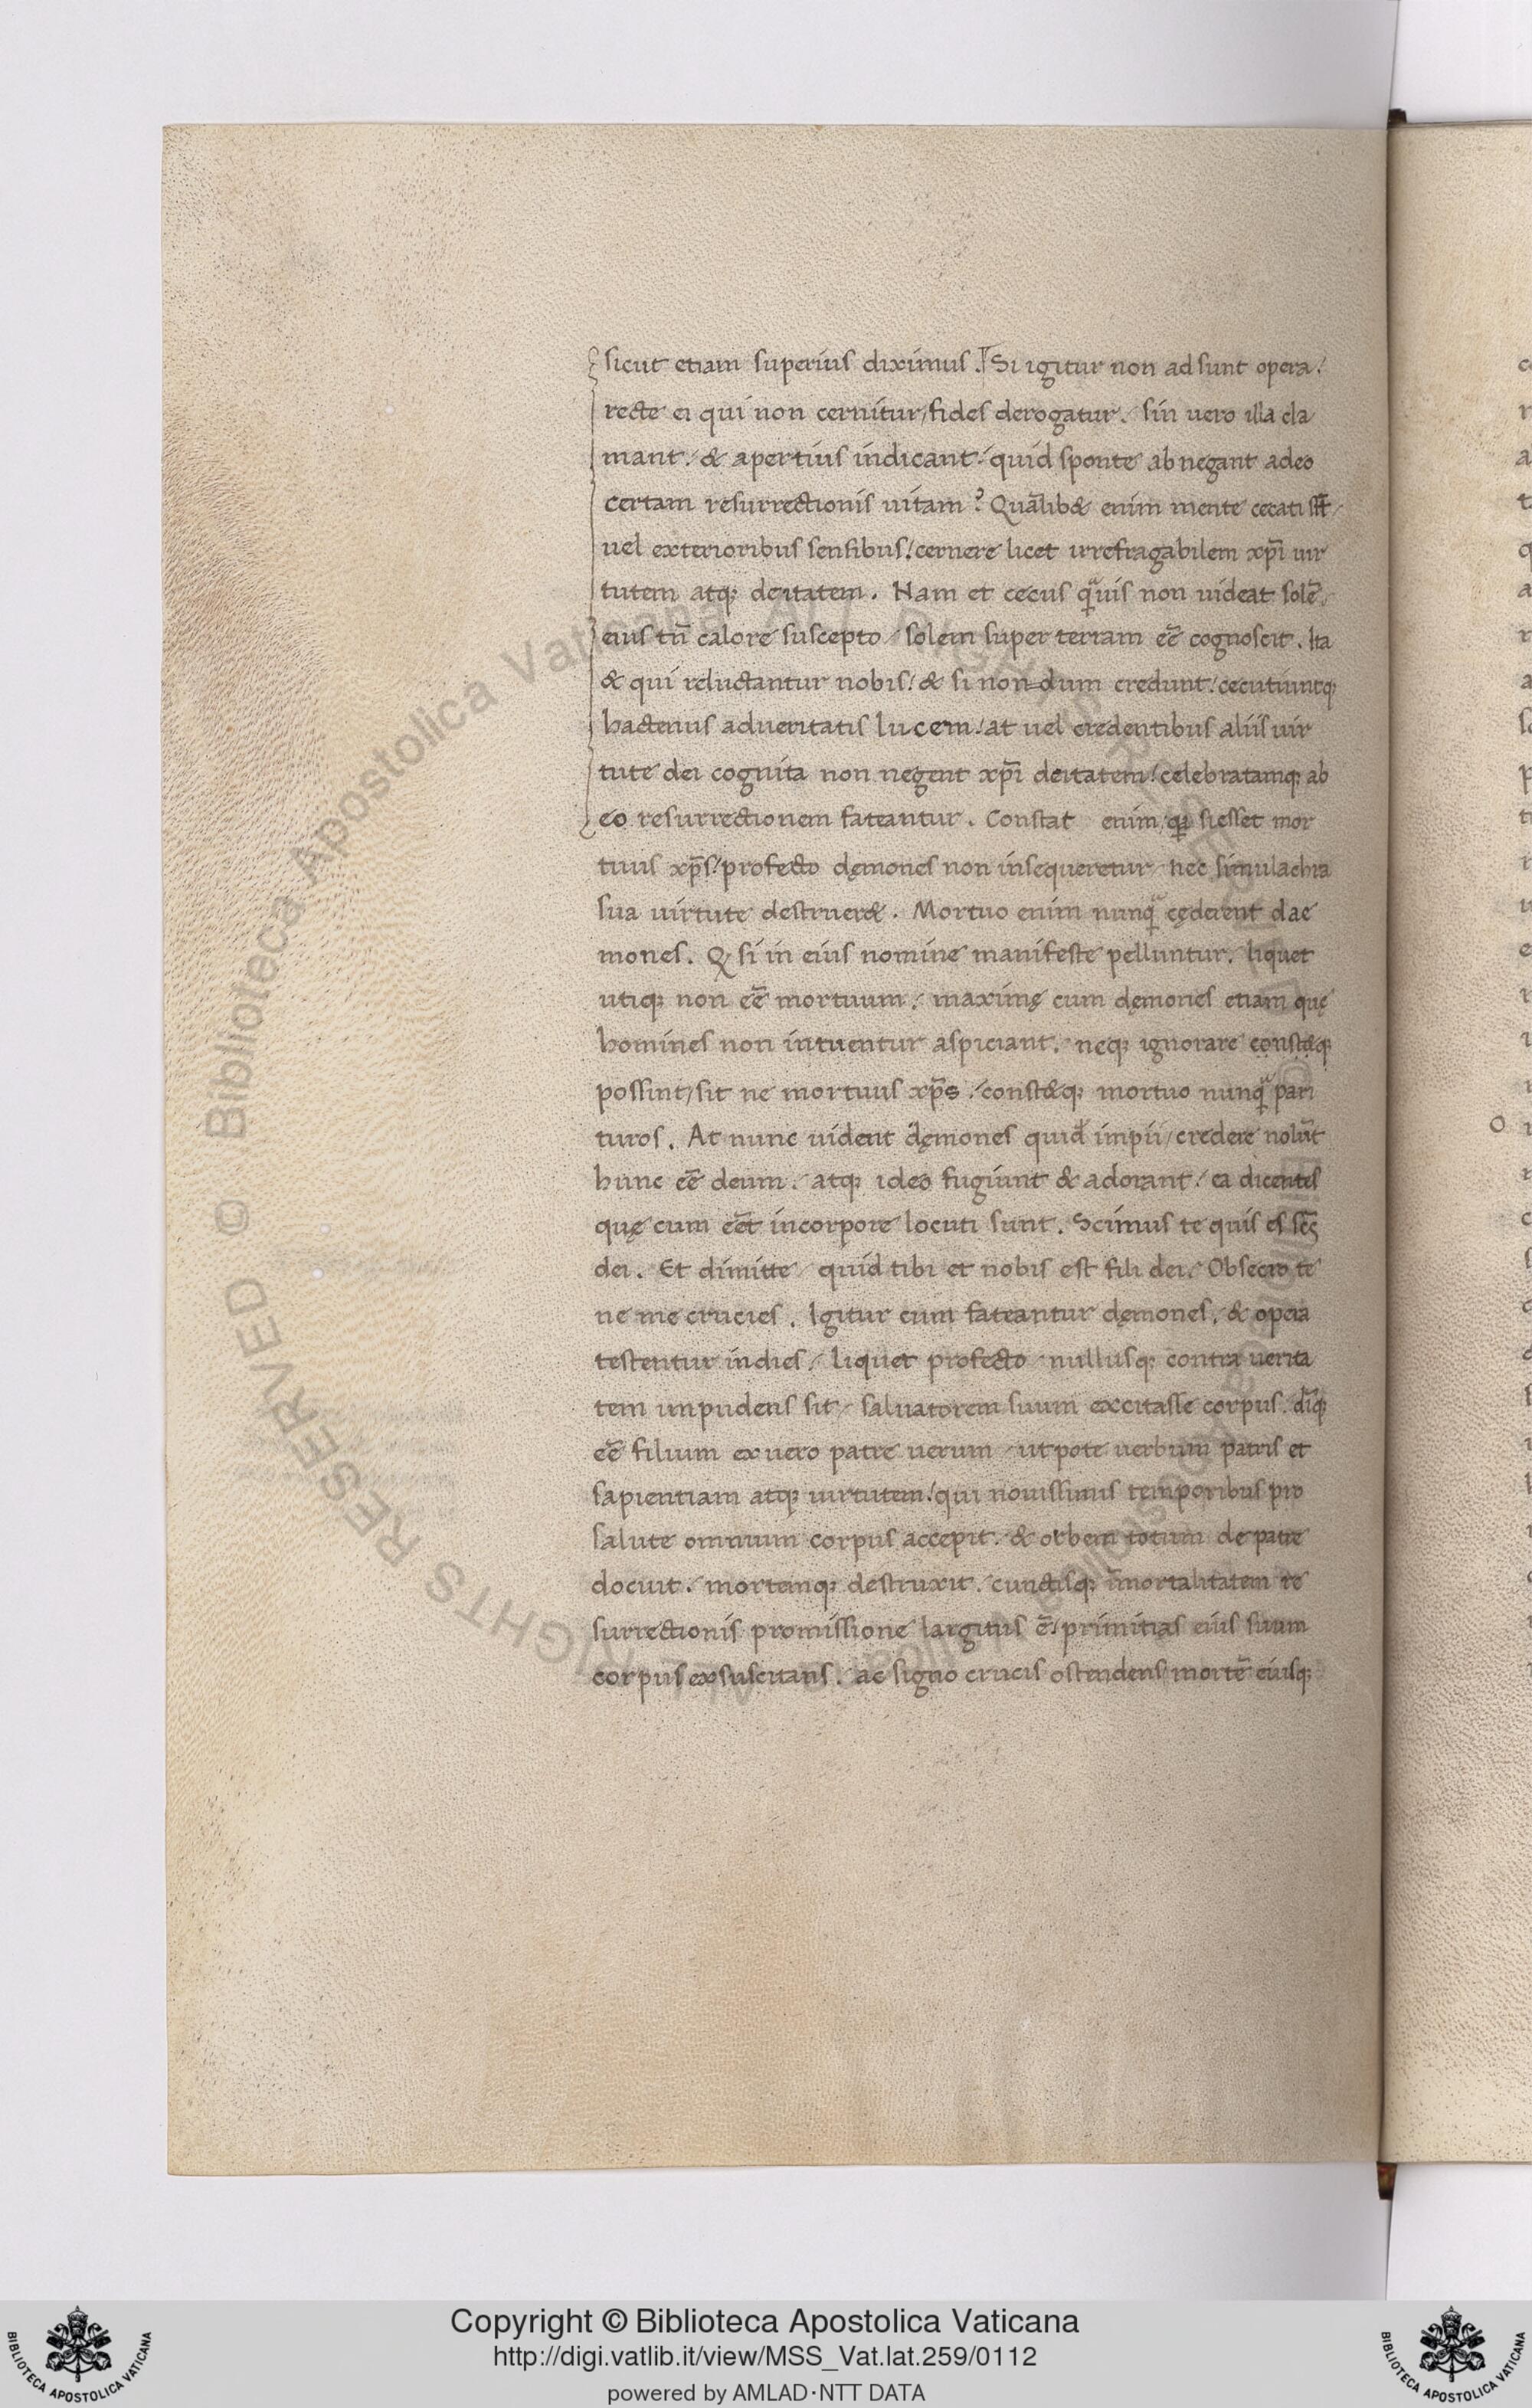 sicut etiam superius diximus. Si igitur non adsunt opera/
recte ei qui non cernitur/ fides derogatur. sin uero illa cla
mant. & apertius indicant. quid sponte abnegant adeo
certam resurrectionis uitam? Quālib& enim mente cecati st̄/
uel exterioribus sensibus/ cernere licet irrefragabilem xp̄i uir
tutem atq; deitatem. Nam et cecus q̄uis non uideat solē.
eius tn̄ calore suscepto/ solem super terram eē cognoscit. Ita
& qui reluctantur nobis/ & si non dum credunt/ cecutiuntq;
hactenus adueritatis lucem/ at uel credentibus aliis uir
tute dei cognita non negent xp̄i deitatem/ celebratamq; ab
eo resurrectionem fateantur. Constat enim, qꝫ si esset mor
tuus xp̄s/ profecto dęmones non insequeretur/ nec simulachra
sua uirtute destruer&. Mortuo enim nunq̄ cęderent dae
mones. Q si in eius nomine manifeste pelluntur. liquet
utiq; non eē mortuum/ maximę cum dęmones etiam quę
homines non intuentur aspiciant. neq; ignorare
possint/ sit ne mortuus xp̄s/ const&q; mortuo nunq̄ pari
turos. At nunc uident dęmones quid impii/ credere nolūt
hunc eē deum. atq; ideo fugiunt & adorant/ ea dicentes
quę cum eēt incorpore locuti sunt. Scimus te quis es scs̄
dei. Et dimitte/ quid tibi et nobis est fili dei. Obsecro te
ne me crucies. Igitur cum fateantur dęmones, & opera
testentur indies/ liquet profecto nullusq; contra uerita
tem impudens sit/ saluatorem suum excitasse corpus. dīq;
eē filium ex uero patre uerum/ ut pote uerbum patris et
sapientiam atq; uirtutem/ qui nouissimis temporibus pro
salute omnium corpus accepit. & orbem totum de patre
docuit. mortemq; destruxit. cunctisq; īmortalitatem re
surrectionis promissione largitus ē/ primitias eius suum
corpus exsuscitans. ac signo crucis ostendens/ mortē eiusq;
o
Copyright © Biblioteca Apostolica Vaticana
http://digi.vatlib.it/view/MSS_Vat.lat.259/0112
powered by AMLAD·NTT DATA
BIBLIOTECA APOSTOLICA VATICANA
BIBLIOTECA APOSTOLICA VATICANA
© Biblioteca Apostolica Vaticana ALL RIGHTS RESERVED
© Biblioteca Apostolica Vaticana ALL RIGHTS RESERVED